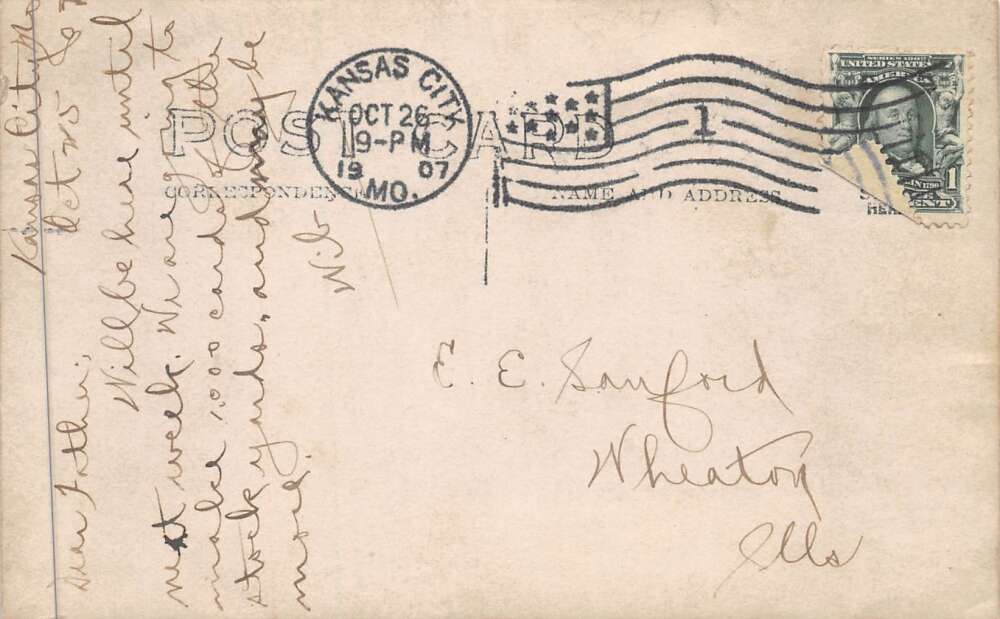 POST CARD
CORRESPONDENCE
NAME AND ADDRESS
KANSAS CITY
OCT 26
9-PM
19 07
MO.
1
SERIES 1902
UNITED STATES
AMERICA
1
HERE
Kansas City Mo
Oct 25 07
Dear Father;
Will be here until
next week. We are going to
make 1,000 cards of the
stock yards, and maybe
more.
Wib
E. E. Sanford
Wheaton
Ills